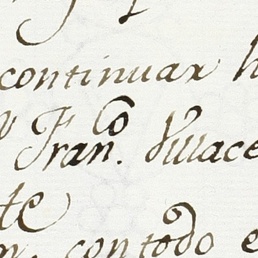 continuar h
Fran.co Villace
te
con todo e